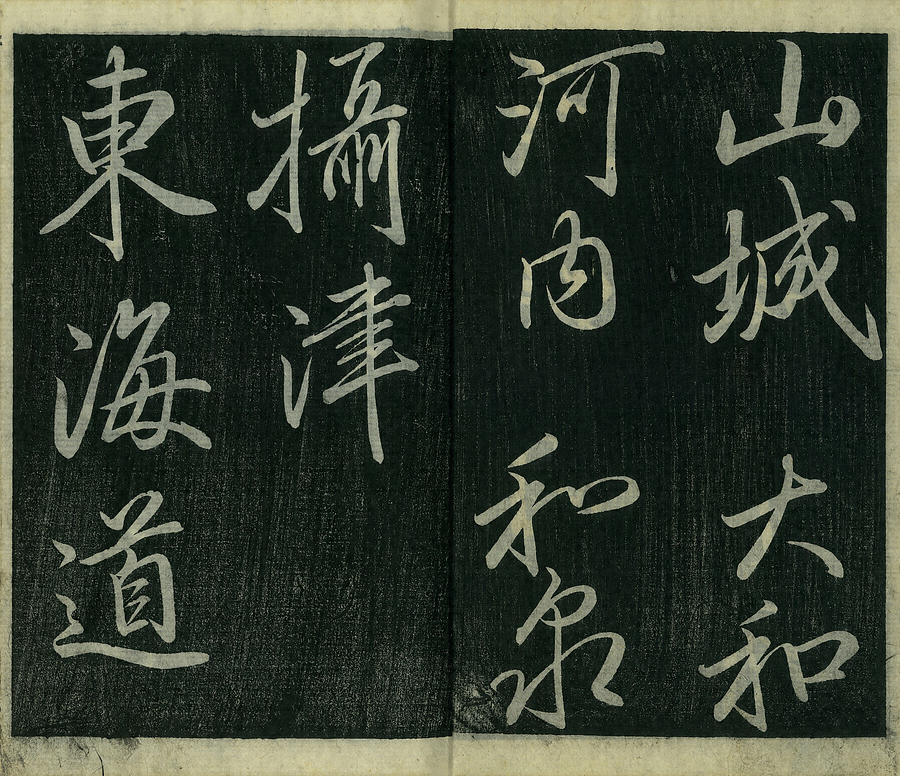 山城 大和
河内 和泉
攝津
東海道